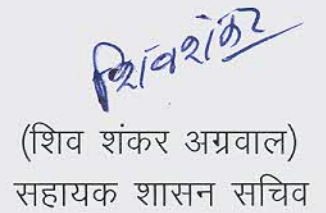 शिवशंकर
(शिव शंकर अग्रवाल)
सहायक शासन सचिव